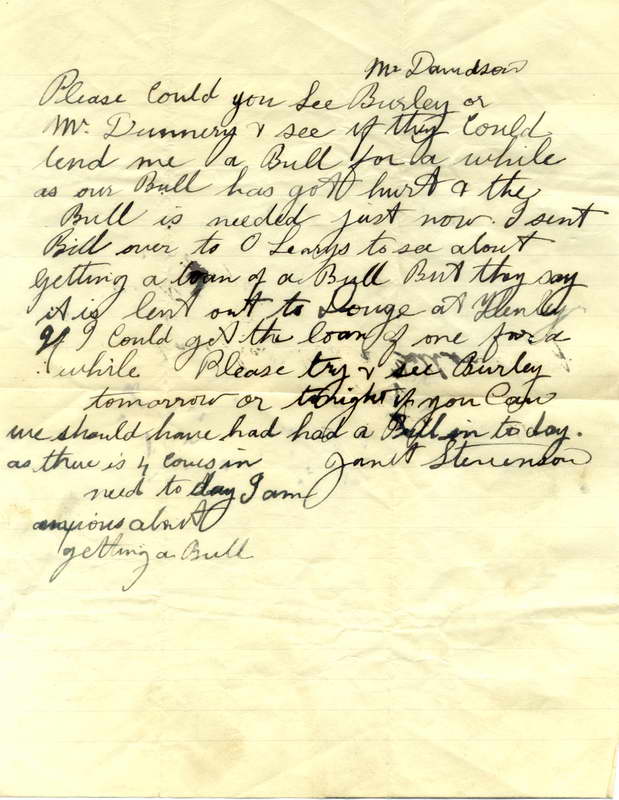 Mr Davidson
Please Could you See Burley or
Mr. Dunnery & see if they Could
lend me a Bull for a while
as our Bull has got hurt & the
Bull is needed just now. I sent
Bill over to O Learys to see about
getting a loan of a Bull But they say
it is lent out to at Henley
If I Could get the loan of one for a
while Please try & see Burley
tomorrow or tonight if you Can
we should have had had a Bull in to day.
as there is 4 Cows in Janet Stevenson
need to day I am
anxious about
getting a Bull